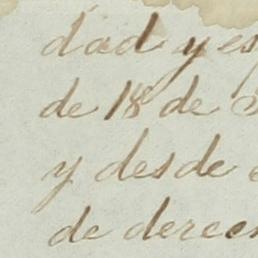 dad y es
de 18 de
y desde
de derec